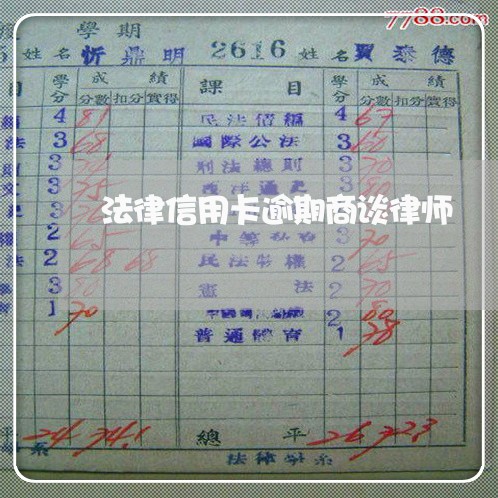 7788.com
學期
5 姓名 忻鼎明 2616 姓名 賈泰德
目 學分 成績 課目 學分 成績
分數 扣分 實得 分數 扣分 實得
4 81 民法債編 4 67
法 3 68 國際公法 3 60
3 刑法總則 3 70
文 3 75 西洋通史 3
法律信用卡逾期商谈律师
2 65 3 70
法 2 68 68 民法物權 2 65
3 憲法 2 70
1 70 2 80
普通體育 1 78
平 24 74.1 總平 26 72.3
系 法律學系